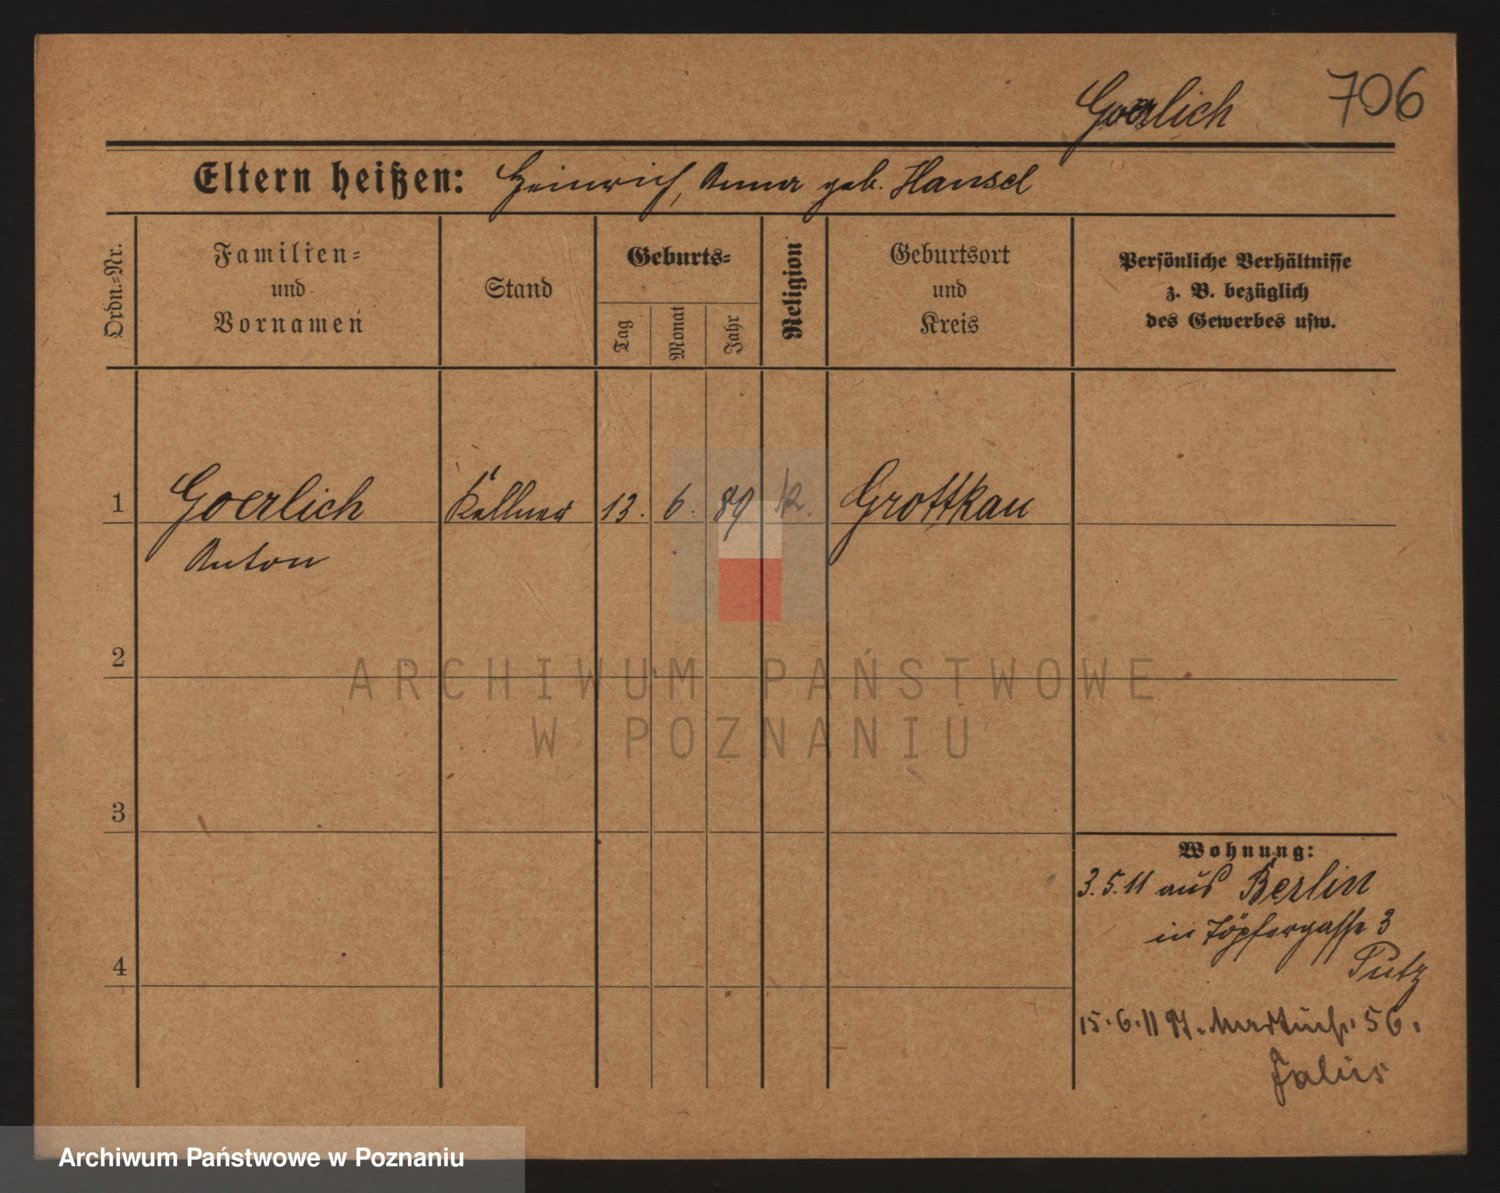 Goerlich 706
Eltern heißen: Heinrich, Anna geb. Hansel
Ordn.-Nr.
Familien-
und
Vornamen
Stand
Geburts-
Tag
Monat
Jahr
Religion
Geburtsort
und
Kreis
Persönliche Verhältnisse
z. B. bezüglich
des Gewerbes usw.
1 Goerlich Kellner 13. 6. 89 k. Grottkau
Anton
2
ARCHIWUM PAŃSTWOWE
W POZNANIU
3
Wohnung:
3.5.11 aus Berlin
in Töpfergasse 3
Putz
4
15.6.11 56.
Archiwum Państwowe w Poznaniu